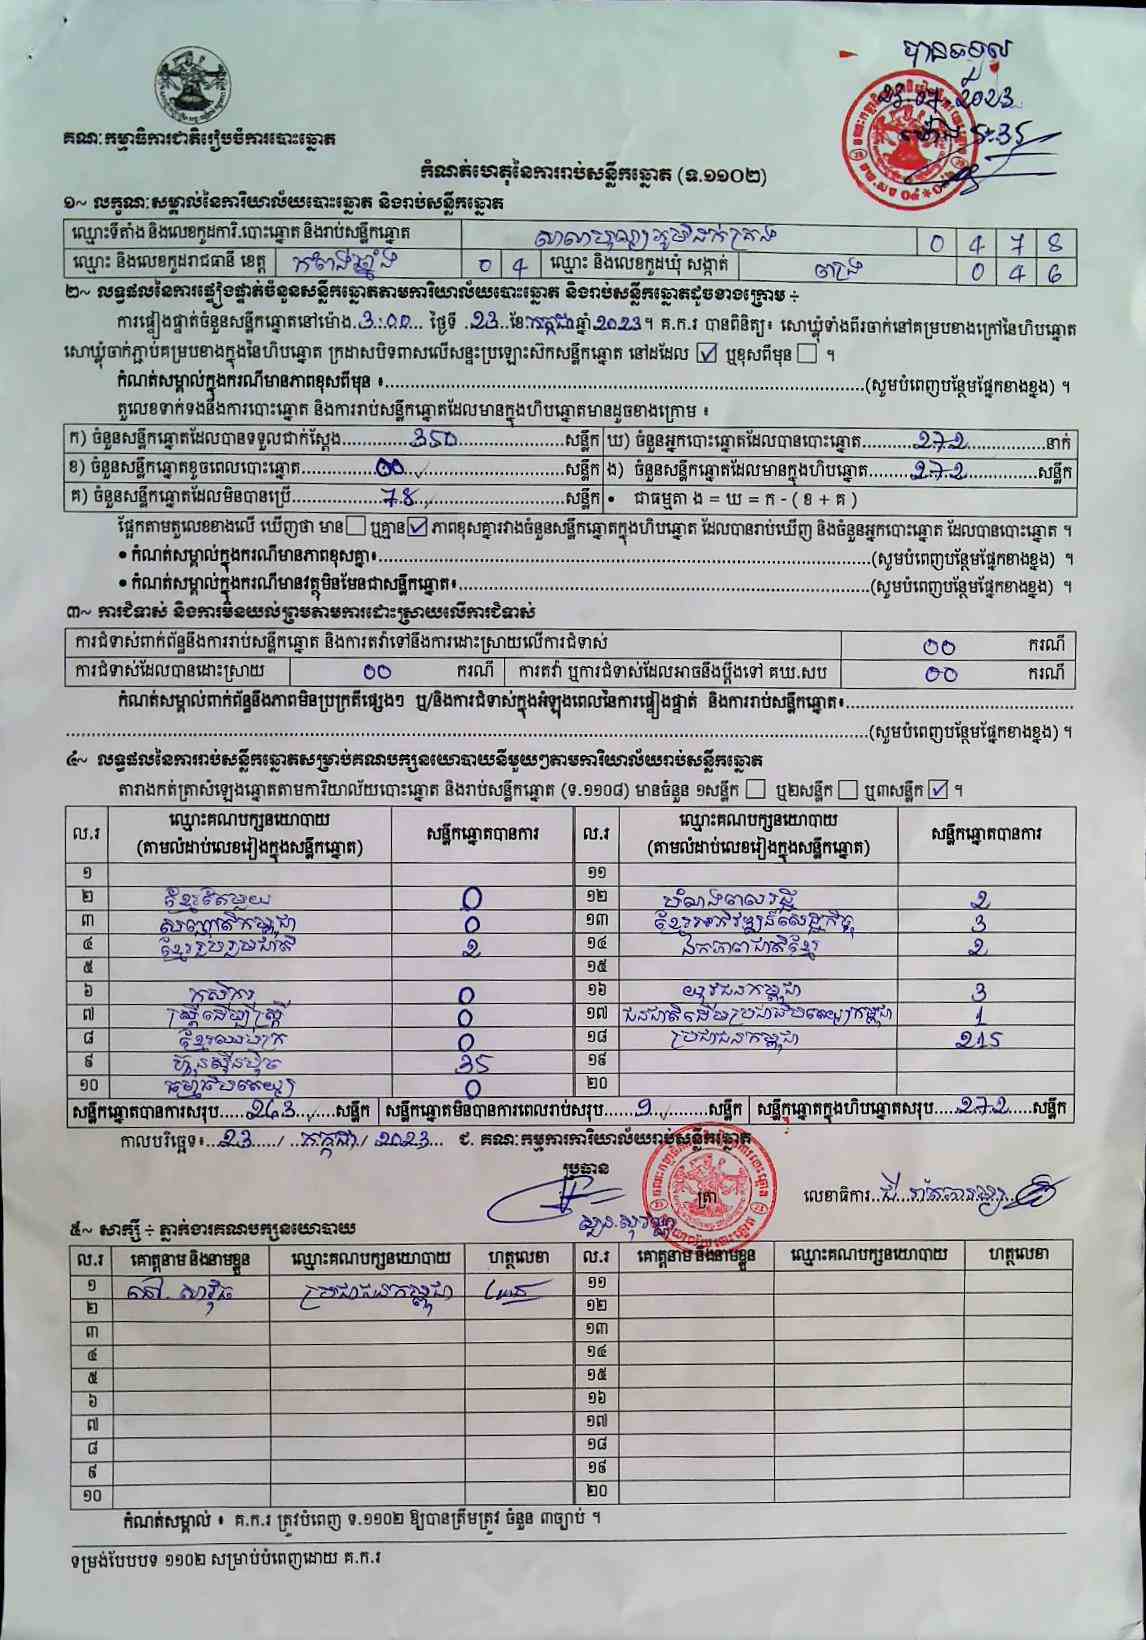 បានទទួល
23.07.2023
ម៉ោង
គណៈកម្មាធិការជាតិរៀបចំការបោះឆ្នោត
កំណត់ហេតុនៃការរាប់សន្លឹកឆ្នោត (ទ.១១០២)
១~ លក្ខណៈសម្គាល់នៃការិយាល័យបោះឆ្នោត និងរាប់សន្លឹកឆ្នោត
ឈ្មោះទីតាំង និងលេខកូដការិ.បោះឆ្នោត និងរាប់សន្លឹកឆ្នោត សាលាបុណ្យភូមិ 0 4 7 8
ឈ្មោះ និងលេខកូដរាជធានី ខេត្ត កំពង់ឆ្នាំង 0 4 ឈ្មោះ និងលេខកូដឃុំ សង្កាត់ 0 4 6
២~ លទ្ធផលនៃការផ្ទៀងផ្ទាត់ចំនួនសន្លឹកឆ្នោតតាមការិយាល័យបោះឆ្នោត និងរាប់សន្លឹកឆ្នោតដូចខាងក្រោម ÷
ការផ្ទៀងផ្ទាត់ចំនួនសន្លឹកឆ្នោតនៅម៉ោង.3:00... ថ្ងៃទី .23..ខែ.កក្កដា.ឆ្នាំ.2023។ គ.ក.រ បានពិនិត្យ៖ សោឃ្លុំទាំងពីរចាក់នៅគម្របខាងក្រៅនៃហិបឆ្នោត
សោឃ្លុំចាក់ភ្ជាប់គម្របខាងក្នុងនៃហិបឆ្នោត ក្រដាសបិទពាសលើសន្ទះប្រឡោះស៊កសន្លឹកឆ្នោត នៅដដែល ☑ ឬខុសពីមុន ☐ ។
កំណត់សម្គាល់ក្នុងករណីមានភាពខុសពីមុន ៖......(សូមបំពេញបន្ថែមផ្នែកខាងខ្នង) ។
តួលេខទាក់ទងនឹងការបោះឆ្នោត និងការរាប់សន្លឹកឆ្នោតដែលមានក្នុងហិបឆ្នោតមានដូចខាងក្រោម ៖
ក) ចំនួនសន្លឹកឆ្នោតដែលបានទទួលជាក់ស្តែង......350......សន្លឹក ឃ) ចំនួនអ្នកបោះឆ្នោតដែលបានបោះឆ្នោត......272......នាក់
ខ) ចំនួនសន្លឹកឆ្នោតខូចពេលបោះឆ្នោត......00......សន្លឹក ង) ចំនួនសន្លឹកឆ្នោតដែលមានក្នុងហិបឆ្នោត......272......សន្លឹក
គ) ចំនួនសន្លឹកឆ្នោតដែលមិនបានប្រើ......78......សន្លឹក • ជាធម្មតា ង = ឃ = ក - ( ខ + គ )
ផ្អែកតាមតួលេខខាងលើ ឃើញថា មាន ☐ ឬគ្មាន ☑ ភាពខុសគ្នារវាងចំនួនសន្លឹកឆ្នោតក្នុងហិបឆ្នោត ដែលបានរាប់ឃើញ និងចំនួនអ្នកបោះឆ្នោត ដែលបានបោះឆ្នោត ។
• កំណត់សម្គាល់ក្នុងករណីមានភាពខុសគ្នា៖......(សូមបំពេញបន្ថែមផ្នែកខាងខ្នង) ។
• កំណត់សម្គាល់ក្នុងករណីមានវត្ថុមិនមែនជាសន្លឹកឆ្នោត៖......(សូមបំពេញបន្ថែមផ្នែកខាងខ្នង) ។
៣~ ការជំទាស់ និងការមិនយល់ព្រមតាមការដោះស្រាយលើការជំទាស់
ការជំទាស់ពាក់ព័ន្ធនឹងការរាប់សន្លឹកឆ្នោត និងការតវ៉ាទៅនឹងការដោះស្រាយលើការជំទាស់ 00 ករណី
ការជំទាស់ដែលបានដោះស្រាយ 00 ករណី ការតវ៉ា ឬការជំទាស់ដែលអាចនឹងប្តឹងទៅ គឃ.សប 00 ករណី
កំណត់សម្គាល់ពាក់ព័ន្ធនឹងភាពមិនប្រក្រតីផ្សេងៗ ឬ/និងការជំទាស់ក្នុងអំឡុងពេលនៃការផ្ទៀងផ្ទាត់ និងការរាប់សន្លឹកឆ្នោត៖......
......(សូមបំពេញបន្ថែមផ្នែកខាងខ្នង) ។
៤~ លទ្ធផលនៃការរាប់សន្លឹកឆ្នោតសម្រាប់គណបក្សនយោបាយនីមួយៗតាមការិយាល័យរាប់សន្លឹកឆ្នោត
តារាងកត់ត្រាសំឡេងឆ្នោតតាមការិយាល័យបោះឆ្នោត និងរាប់សន្លឹកឆ្នោត (ទ.១១០៨) មានចំនួន ១សន្លឹក ☐ ឬ២សន្លឹក ☐ ឬ៣សន្លឹក ☑ ។
ល.រ ឈ្មោះគណបក្សនយោបាយ (តាមលំដាប់លេខរៀងក្នុងសន្លឹកឆ្នោត) សន្លឹកឆ្នោតបានការ ល.រ ឈ្មោះគណបក្សនយោបាយ (តាមលំដាប់លេខរៀងក្នុងសន្លឹកឆ្នោត) សន្លឹកឆ្នោតបានការ
១ ១១
២ ខ្មែរតែមួយ 0 ១២ បំណងពលរដ្ឋ 2
៣ សញ្ជាតិកម្ពុជា 0 ១៣ ខ្មែរអភិវឌ្ឍន៍សេដ្ឋកិច្ច 3
៤ ខ្មែររួបរួមជាតិ 2 ១៤ ឯកភាពជាតិខ្មែរ 2
៥ ១៥
៦ កសិករ 0 ១៦ យុវជនកម្ពុជា 3
៧ ស្ត្រីដើម្បីស្ត្រី 0 ១៧ ជនជាតិដើមប្រជាធិបតេយ្យកម្ពុជា 1
៨ ខ្មែរឈប់ក្រ 0 ១៨ ប្រជាជនកម្ពុជា 215
៩ ហ៊្វុនស៊ិនប៉ិច 35 ១៩
១០ ធម្មាធិបតេយ្យ 0 ២០
សន្លឹកឆ្នោតបានការសរុប.....263......សន្លឹក សន្លឹកឆ្នោតមិនបានការពេលរាប់សរុប......9......សន្លឹក សន្លឹកឆ្នោតក្នុងហិបឆ្នោតសរុប.....272.....សន្លឹក
កាលបរិច្ឆេទ៖...23..../...កក្កដា./.2023... ជ. គណៈកម្មការការិយាល័យរាប់សន្លឹកឆ្នោត
ប្រធាន ត្រា លេខាធិការ
៥~ សាក្សី ÷ ភ្នាក់ងារគណបក្សនយោបាយ
ល.រ គោត្តនាម និងនាមខ្លួន ឈ្មោះគណបក្សនយោបាយ ហត្ថលេខា ល.រ គោត្តនាម និងនាមខ្លួន ឈ្មោះគណបក្សនយោបាយ ហត្ថលេខា
១ នៅ សារ៉ុច ប្រជាជនកម្ពុជា ១១
២ ១២
៣ ១៣
៤ ១៤
៥ ១៥
៦ ១៦
៧ ១៧
៨ ១៨
៩ ១៩
១០ ២០
កំណត់សម្គាល់ ៖ គ.ក.រ ត្រូវបំពេញ ទ.១១០២ ឱ្យបានត្រឹមត្រូវ ចំនួន ៣ច្បាប់ ។
ទម្រង់បែបបទ ១១០២ សម្រាប់បំពេញដោយ គ.ក.រ